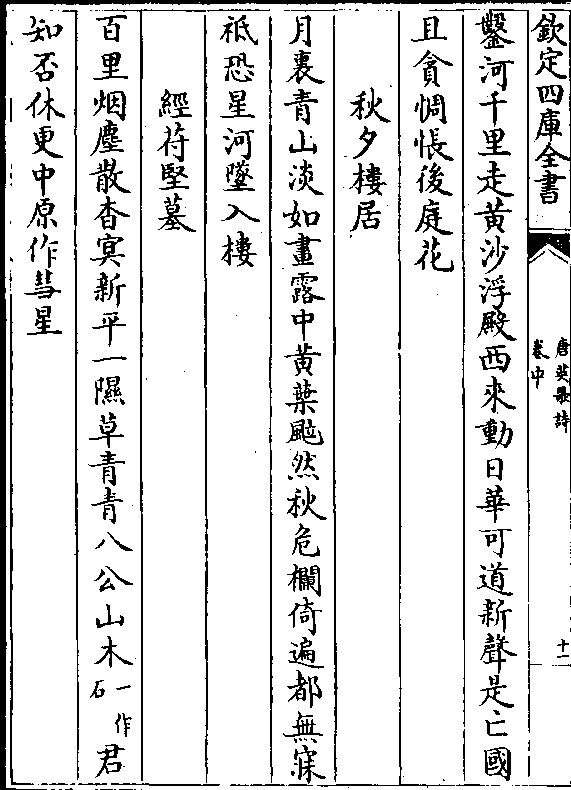 欽定四庫全書
唐英歌詩
卷中
十一
鑿河千里走黄沙浮殿西來動日華可道新聲是亡國
且貪惆悵後庭花
秋夕樓居
月裏青山淡如畫露中黄葉颯然秋危欄倚遍都無寐
祗恐星河墜入樓
經苻堅墓
百里烟塵散杳冥新平一隰草青青八公山木一作石君
知否休更中原作彗星